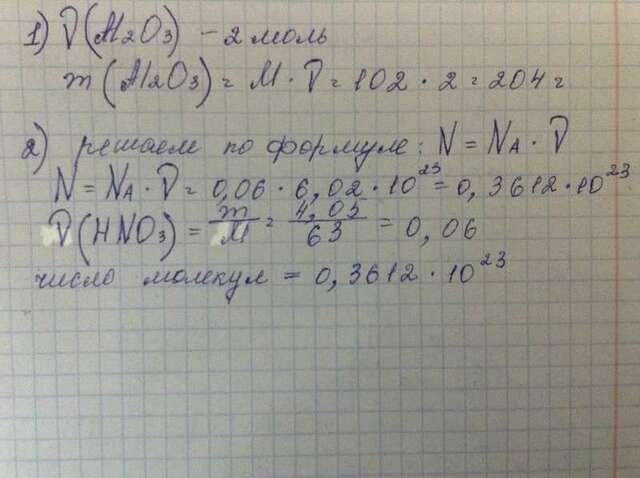 1) ν(Al2O3) - 2 моль
m(Al2O3) = M · ν = 102 · 2 = 204 г
2) решаем по формуле: N = NA · ν
N = NA · ν = 0,06 · 6,02 · 10^23 = 0,3612 · 10^23
ν(HNO3) = m/M = 4,03/63 = 0,06
число молекул = 0,3612 · 10^23